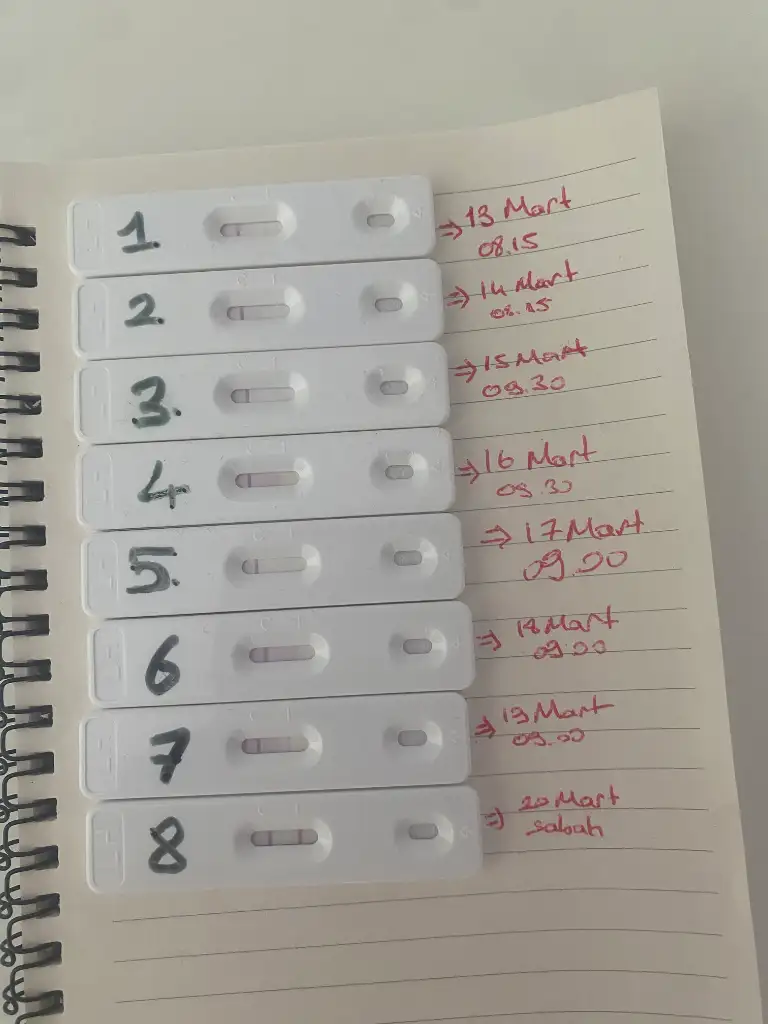 1. ⇒ 13 Mart
08.15
2. ⇒ 14 Mart
08.15
3. ⇒ 15 Mart
09.30
4 ⇒ 16 Mart
09.30
5. ⇒ 17 Mart
09.00
6 ⇒ 18 Mart
09.00
7 ⇒ 19 Mart
09.00
8 ⇒ 20 Mart
sabah